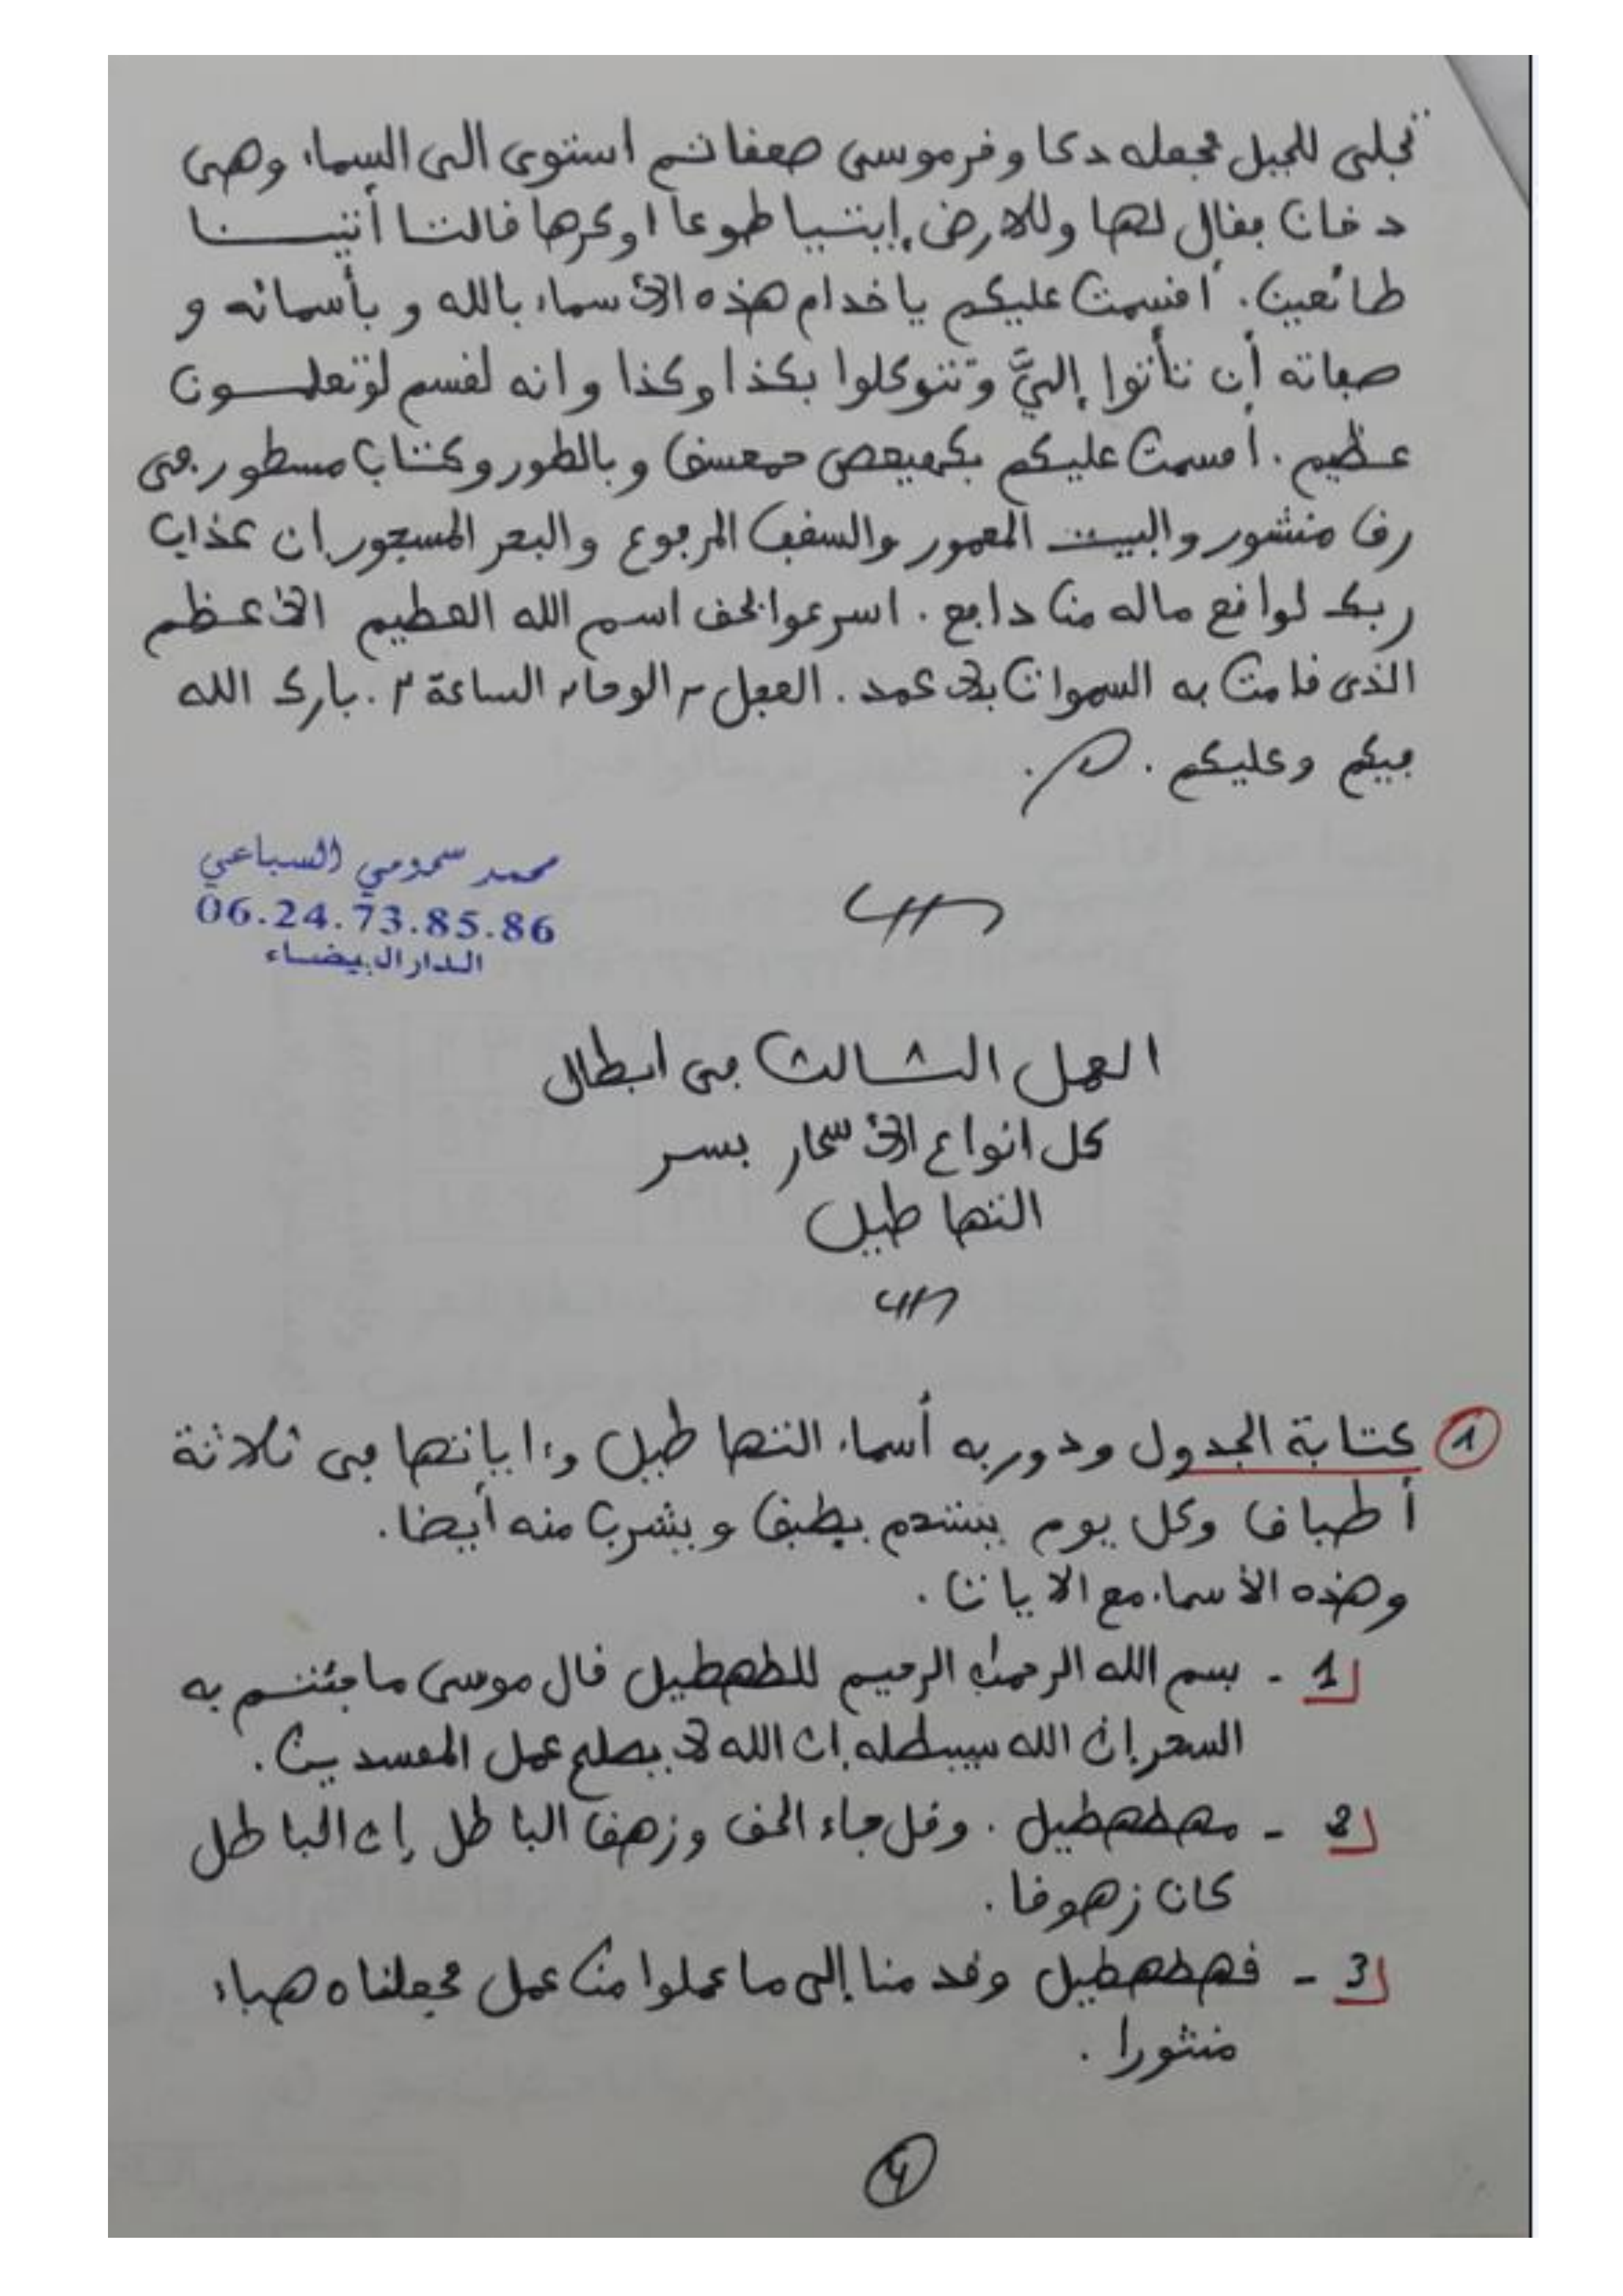 تجلى للجبل فجعله دكا وخر موسى صعقا ثم استوى الى السماء وهي
دخان فقال لها وللارض إيتيا طوعا او كرها قالتا أتينا
طائعين. أقسمت عليكم يا خدام هذه الاسماء بالله و بأسمائه و
صفاته أن تأتوا إليَّ وتتوكلوا بكذا وكذا وانه لقسم لو تعلمون
عظيم. أقسمت عليكم بكهيعص حمعسق وبالطور وكتاب مسطور في
رق منشور والبيت المعمور والسقف المرفوع والبحر المسجور ان عذاب
ربك لواقع ماله من دافع. اسرعوا بحق اسم الله العظيم الاعظم
الذى قامت به السموات بلا عمد. العجل ٢ الوحا ٢ الساعة ٢. بارك الله
فيكم وعليكم.
محمد سمومي السباعي
06.24.73.85.86
الدار البيضاء
العمل الثالث في ابطال
كل انواع الاسحار بسر
التهاطيل
1 كتابة الجدول ودور به أسماء التهاطيل وءاياتها في ثلاثة
أطباق وكل يوم يستحم بطبق ويشرب منه أيضا.
وهذه الأسماء مع الايات.
1 - بسم الله الرحمن الرحيم للطهطيل قال موسى ما جئتم به
السحر إن الله سيبطله إن الله لا يصلح عمل المفسدين.
2 - مهطهطيل. وقل جاء الحق وزهق الباطل إن الباطل
كان زهوقا.
3 - فهطهطيل وقدمنا إلى ما عملوا من عمل فجعلناه هباء
منثورا.
4